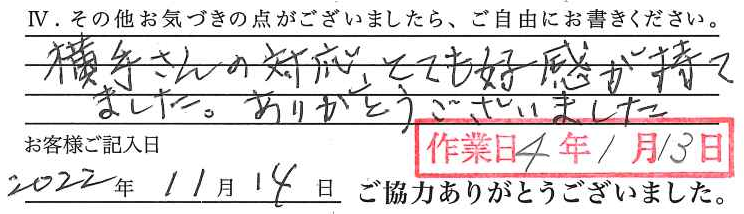 Ⅳ．その他お気づきの点がございましたら、ご自由にお書きください。
横手さんの対応とても好感が持て
ました。ありがとうございました
お客様ご記入日
作業日4年1月13日
2022年11月14日 ご協力ありがとうございました。